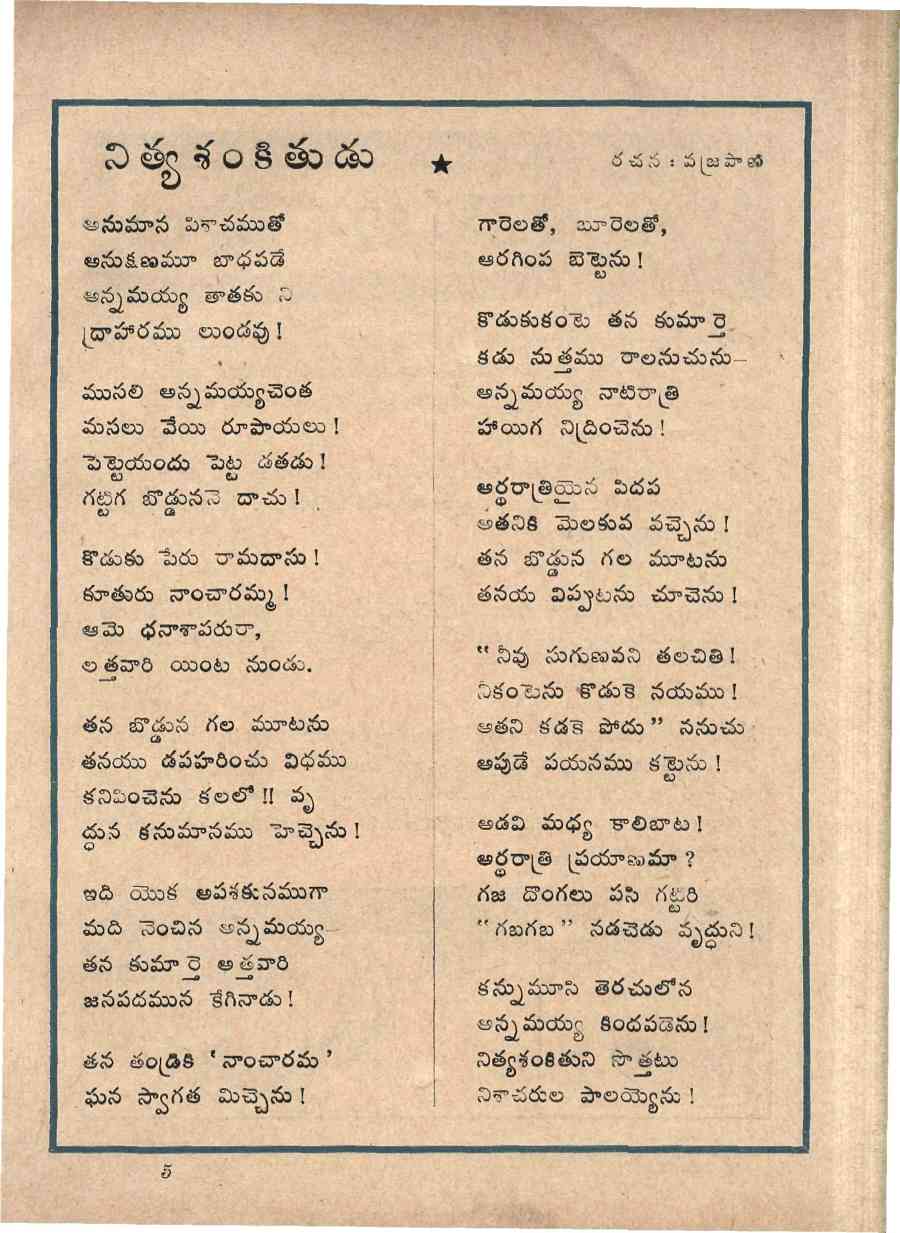 నిత్యశంకితుడు ★
రచన : వజ్రపాణి
అనుమాన పిశాచముతో
అనుక్షణమూ బాధపడే
అన్నమయ్య తాతకు ని
ద్రాహారము లుండవు!
ముసలి అన్నమయ్యచెంత
మసలు వేయి రూపాయలు!
పెట్టెయందు పెట్ట డతడు!
గట్టిగ బొడ్డుననె దాచు!
కొడుకు పేరు రామదాసు!
కూతురు నాంచారమ్మ!
ఆమె ధనాశాపరురా,
లత్తవారి యింట నుండు.
తన బొడ్డున గల మూటను
తనయు డపహరించు విధము
కనిపించెను కలలో!! వృ
ద్ధున కనుమానము హెచ్చెను!
ఇది యొక అపశకునముగా
మది నెంచిన అన్నమయ్య—
తన కుమార్తె అత్తవారి
జనపదమున కేగినాడు!
తన తండ్రికి 'నాంచారమ'
ఘన స్వాగత మిచ్చెను!
గారెలతో, బూరెలతో,
ఆరగింప బెట్టెను!
కొడుకుకంటె తన కుమార్తె
కడు నుత్తము రాలనుచును—
అన్నమయ్య నాటిరాత్రి
హాయిగ నిద్రించెను!
అర్థరాత్రియైన పిదప
అతనికి మెలకువ వచ్చెను!
తన బొడ్డున గల మూటను
తనయ విప్పుటను చూచెను!
"నీవు సుగుణవని తలచితి!
నీకంటెను కొడుకె నయము!
అతని కడకె పోదు" ననుచు
అపుడే పయనము కట్టెను!
అడవి మధ్య కాలిబాట!
అర్థరాత్రి ప్రయాణమా?
గజ దొంగలు పసి గట్టిరి
"గబగబ" నడచెడు వృద్ధుని!
కన్నుమూసి తెరచులోన
అన్నమయ్య కిందపడెను!
నిత్యశంకితుని సొత్తటు
నిశాచరుల పాలయ్యెను!
5